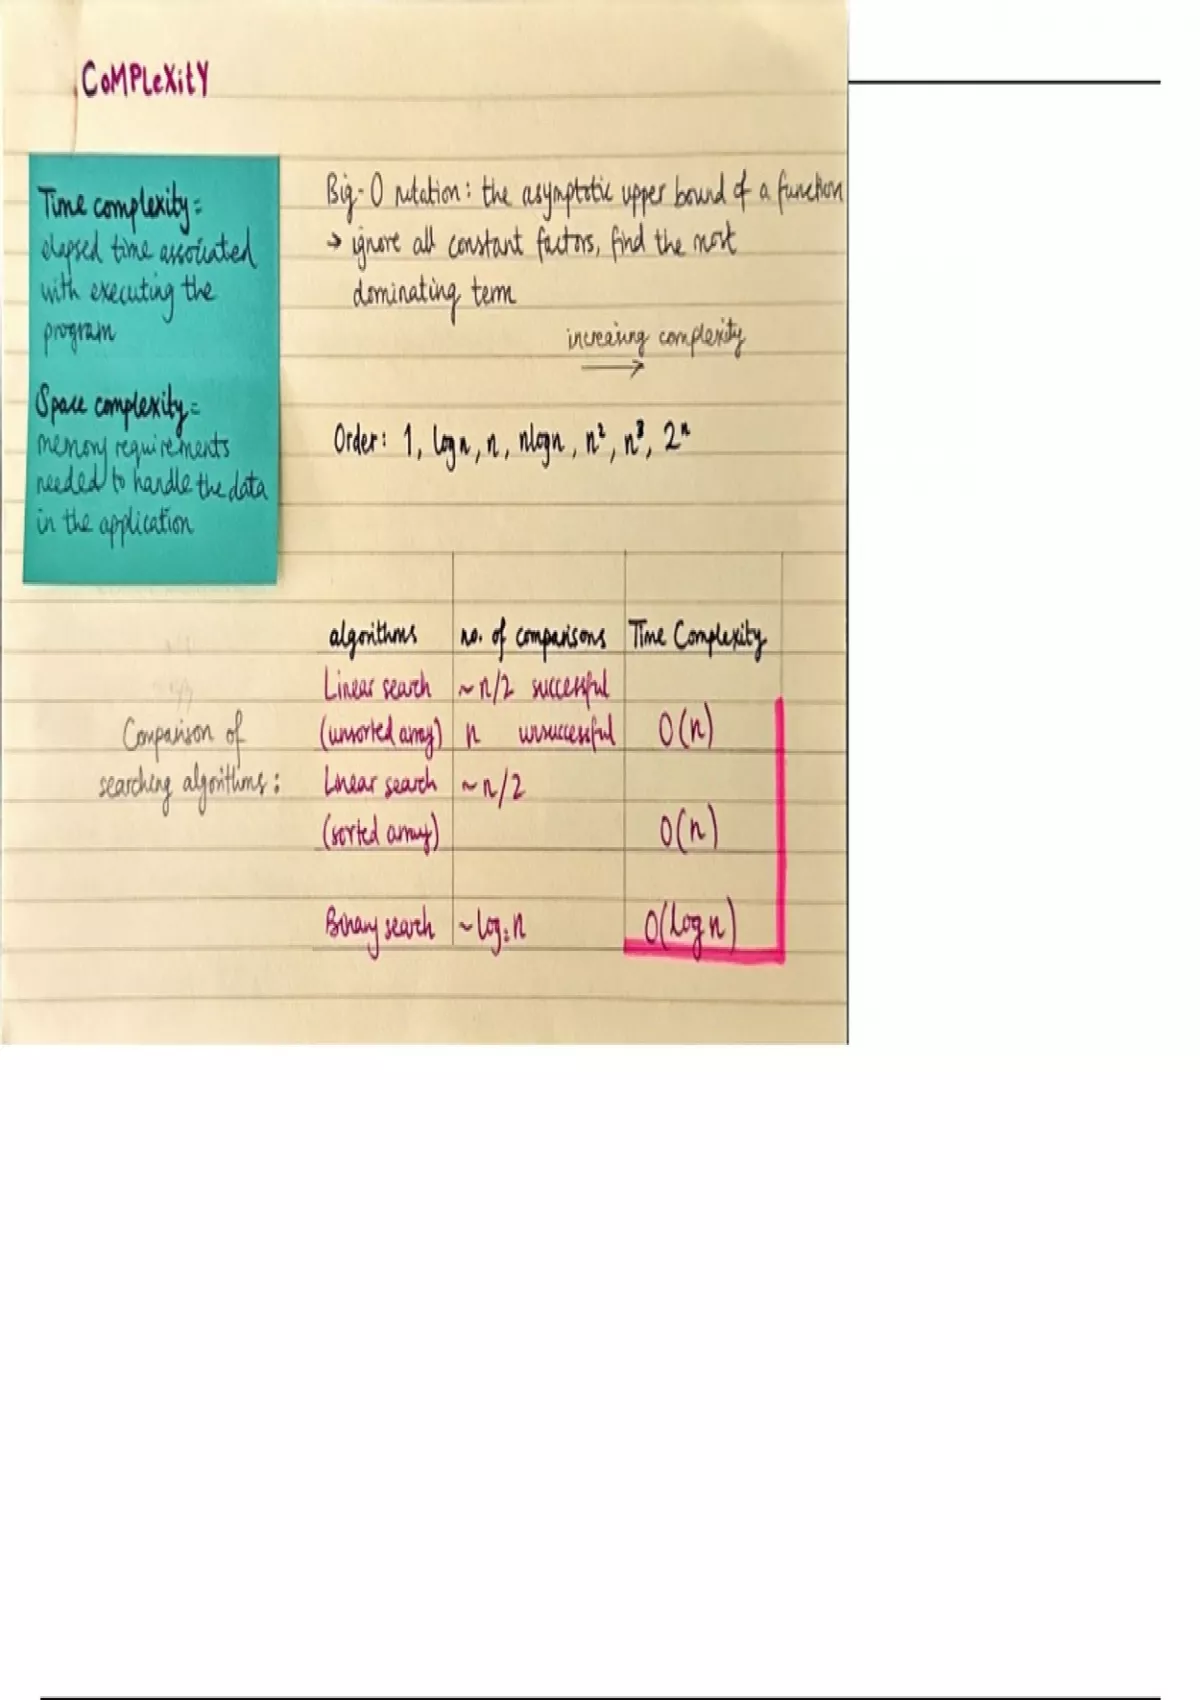 CoMPLeXitY
Time complexity:
elapsed time associated
with executing the
program
Space complexity:
memory requirements
needed to handle the data
in the application
Big-O notation: the asymptotic upper bound of a function
→ ignore all constant factors, find the most
dominating term
increasing complexity
→
Order: 1, logn, n, nlogn, n², n³, 2ⁿ
Comparison of
searching algorithms:
algorithms no. of comparisons Time Complexity
Linear search ~n/2 successful
(unsorted array) n unsuccessful O(n)
Linear search ~n/2
(sorted array) O(n)
Binary search ~log₂n O(logn)